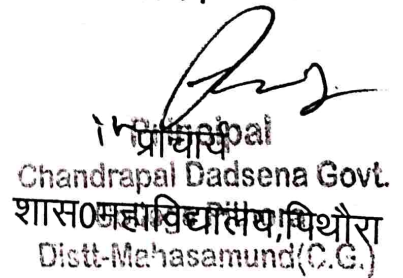 Principal
प्राचार्य
Chandrapal Dadsena Govt.
शास0महाविद्यालय,पिथौरा
Distt-Mahasamund(C.G.)